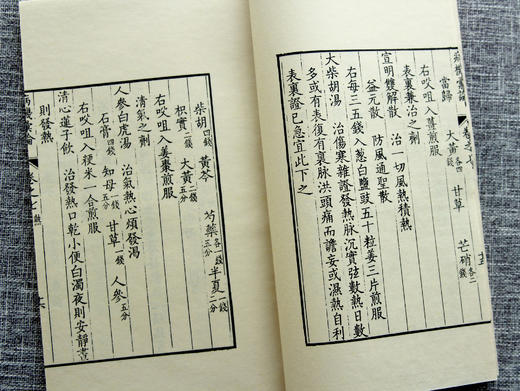 卷之七
當歸 大黃各四 甘 芒硝各二錢
右㕮咀入薑煎服
表裏兼治之劑
宣明雙解散 治一切風熱積熱
益元散 防風通聖散
右每三五錢入葱白鹽豉五十粒姜三片煎服
大柴胡湯 治傷寒雜證發熱脈沉實弦數熱日數
多或有表復有裏脈洪頭痛而譫妄或濕熱自利
表裏證已急宜此下之
柴胡四錢 黃芩 芍藥各一錢五分 半夏一錢二分
枳實一錢 大黃二錢五分
右㕮咀入姜棗煎服
清氣之劑
人參白虎湯 治氣熱心煩發渴
石膏四錢 知母一錢五分 甘草一錢 人參五分
右㕮咀入粳米一合煎服
清心蓮子飲 治發熱口乾小便白濁夜則安靜晝
則發熱
卷之七 熱